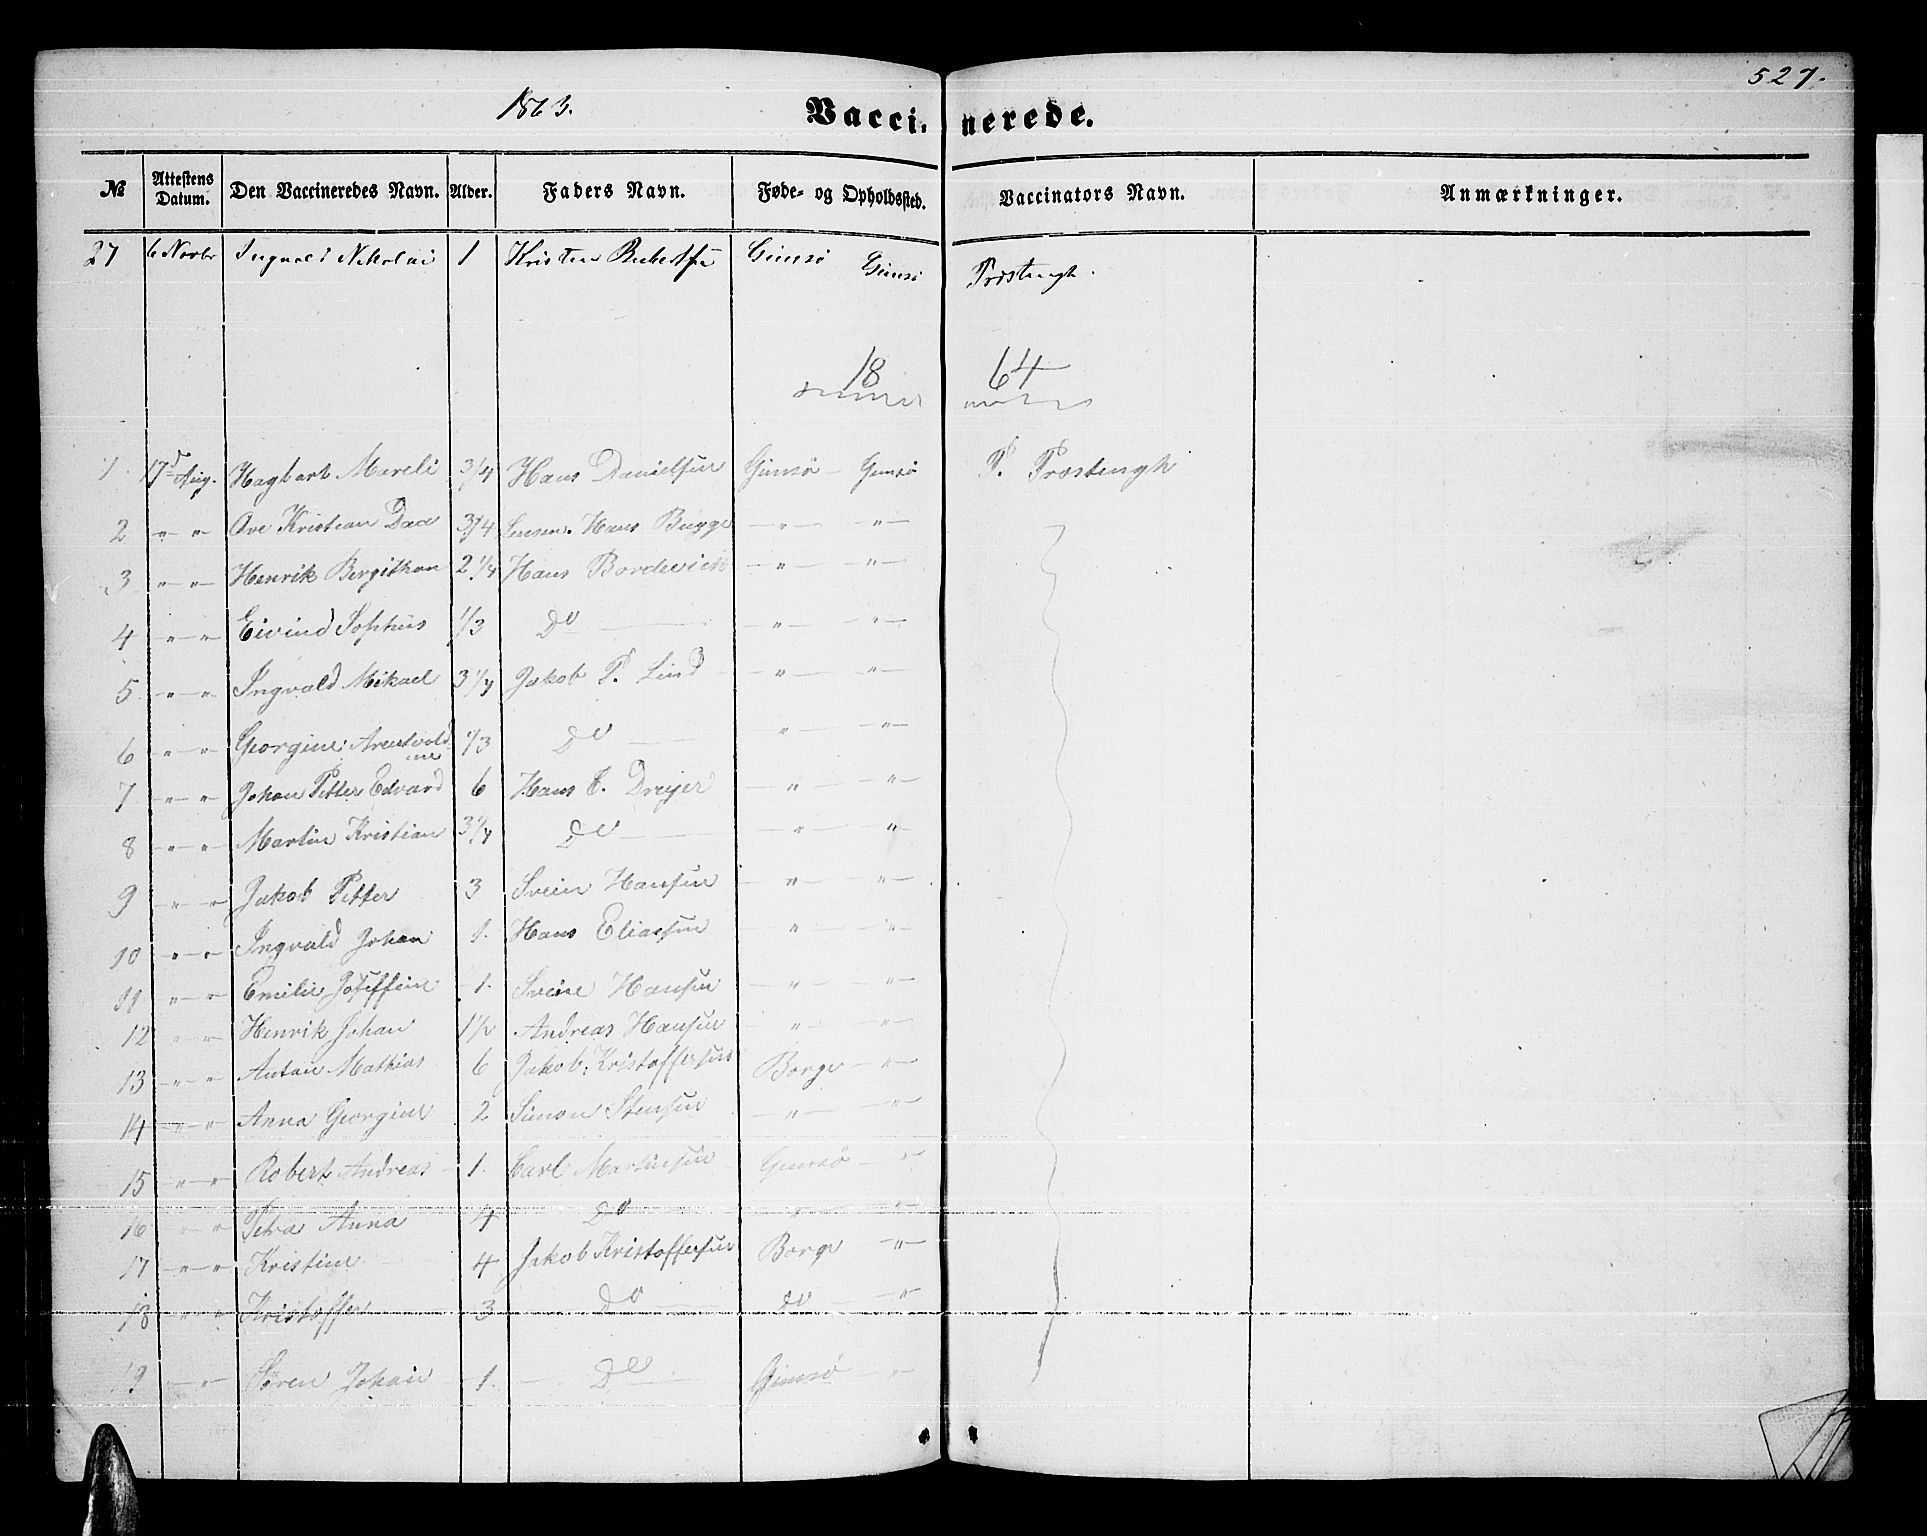 527.
1863. Vaccinerede.
№ Attestens Datum. Den Vaccineredes Navn. Alder. Faders Navn. Føde- og Opholdssted. Vaccinators Navn. Anmærkninger.
27 6 Novbr Ingvald Nikolai 1 Kristen Gimsø Gimsø Trostengh.
18 64
1 17d Aug. Hagbart Mareli 3/4 Hans Danielsen Gimsø — Gimsø P. Trostengh
2 " " Ove Kristian Daa 3/4 Lensm. Hans Bugge " "
3 " " Henrik Bergithon 2 1/4 Hans Bordevick " "
4 " " Eivind Sophus 1/3 Do " "
5 " " Ingvald Mikael 3 1/4 Jakob P. Lind " "
6 " " Georgine Arentvoldine 1/3 Do " "
7 " " Johan Petter Edvard 6 Hans C. Dreyer " "
8 " " Martin Kristian 3 1/4 Do " "
9 " " Jakob Petter 3 Svein Hansen " "
10 " " Ingvald Johan 1. Hans Eliassen " "
11 " " Emilie Joseffine 1. Svein Hansen " "
12 " " Henrik Johan 1 1/2 Andreas Hansen " "
13 " " Antan Mathias 6 Jakob Kristoffersen Borge "
14 " " Anna Georgine 2 Simon Stensen " "
15 " " Robert Andreas 1. Carl Martinsen Gimsø "
16 " " Petra Anna 4 Do " "
17 " " Kristine 4 Jakob Kristoffersen Borge "
18 " " Kristoffer 3 Do do "
19 " " Søren Johan 1. Do Gimsø "